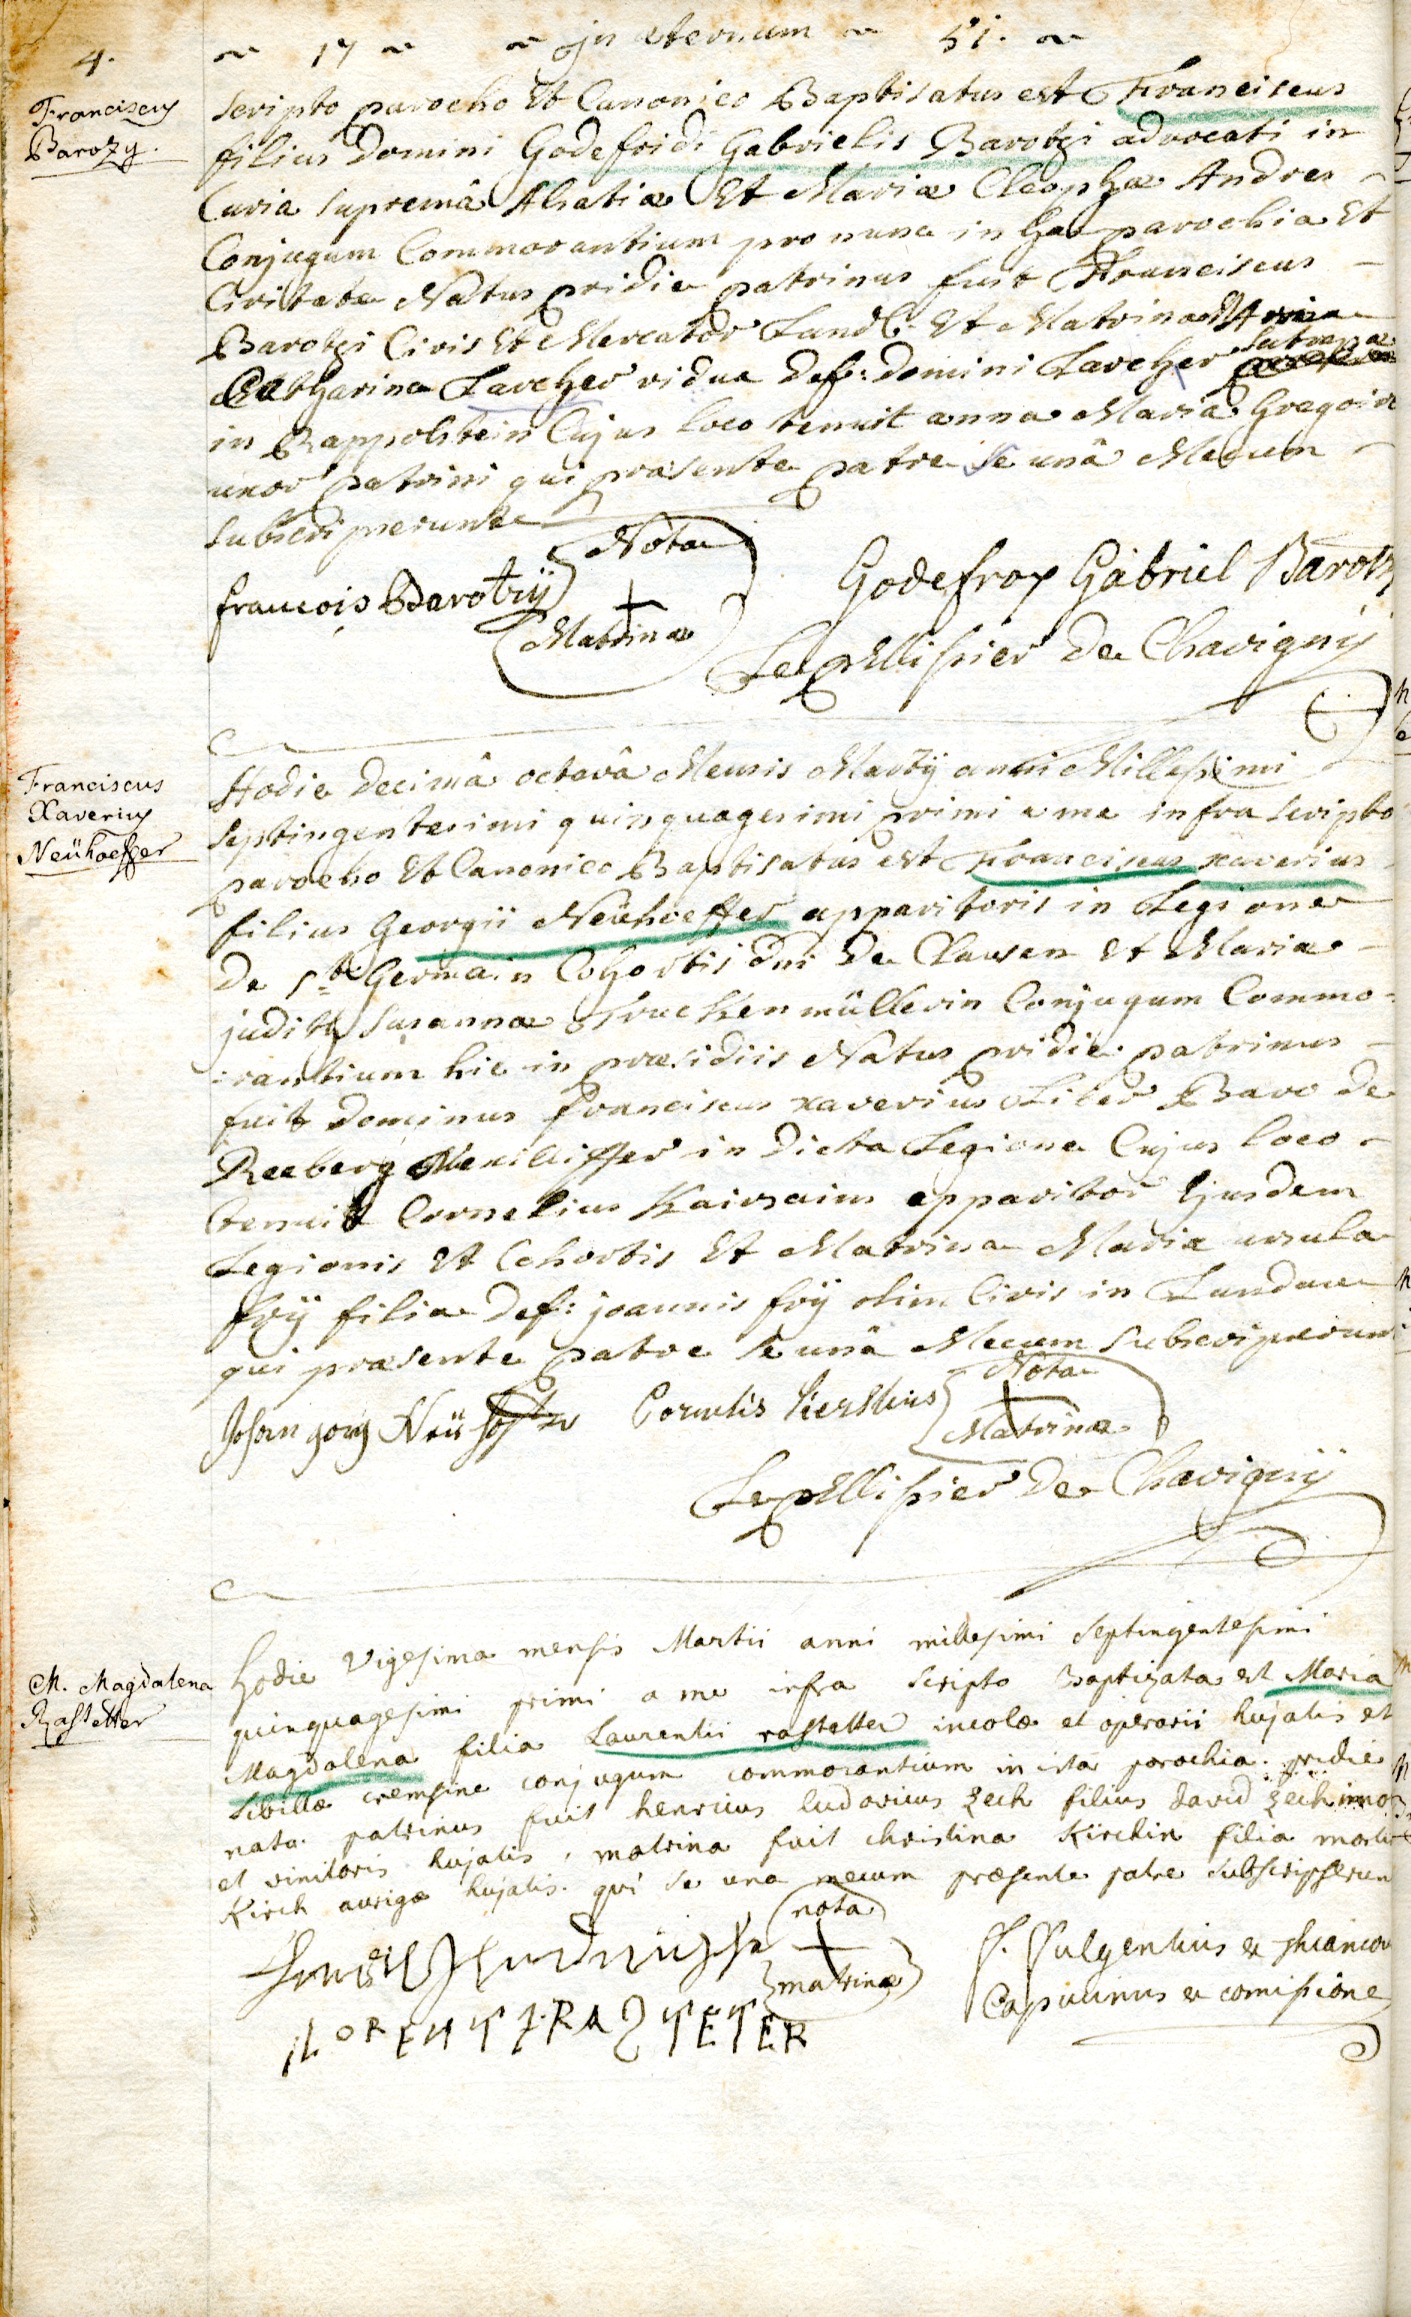 4.
17 in æternum 51.
Franciscus
Barozy.
scripto parocho Et Canonico Baptisatus est Franciscus
filius Domini Godefridi Gabrielis Barotzi advocati in
Curia supremâ Alsatiæ Et Mariæ Cleophæ Andres
Conjugum Commorantium pro nunc in hac parochia Et
Civitate Natus pridie patrinus fuit Franciscus
Barotzi Civis Et Mercator Land: Et Matrina Maria
Catharina Larcher vidua def: Domini Larcher Satrapæ
in Rappolstein Cujus loco tenuit anna Maria Gregoire
uxor patrini qui præsente patre se unâ Mecum
subscripserunt
Nota
francois Barotzÿ
+
Matrinæ
Godefroy Gabriel Barotz
Lepellissier De Chavignÿ
Franciscus
Xaverius
Neühoeffer
Hodie Decimâ octavâ Mensis Martÿ anni Millesimi
septingentesimi quinquagesimi primi a me infra scripto
parocho Et Canonico Baptisatus est Franciscus xaverius
filius Georgii Neühoeffer apparitoris in Legione
De St Germain Cohortis dni De Clausen Et Mariæ
judith Susannæ Truckenmüllerin Conjugum Commo-
:rantium hic in præsidiis Natus pridie patrinus
fuit Dominus Franciscus xaverius Liber Baro de
Reeberg Vexilliffer in Dicta Legione Cujus loco
tenuit Cornelius Kairsaius apparitor Ejusdem
Legionis Et Cohortis Et Matrina Maria ursula
frÿ filia Def: joannis frÿ olim Civis in Landau
qui præsente patre se unâ Mecum subscripserunt
Nota
Johan gorg Neühoffer Cornelis Kierskius
+
Matrinæ
Lepellissier De Chavignÿ
M. Magdalena
Rastetter
hodie Vigesima mensis Martii anni millesimi septingentesimi
quinquagesimi primi a me infra scripto Baptizata est Maria
Magdalena filia Laurentii rastetter incolæ et operarii hujatis et
Sibillæ cremsine conjugum commorantium in ista parochia. pridie
nata. patrinus fuit henricus ludovicus zech filius david zech
et vinitoris hujatis, matrina fuit christina Kirchin filia
Kirch aurigæ hujatis. qui se una mecum præsente patre subscripserun
nota
+
matrinæ
LORENTZ RASTETER
F. Fulgentius
Capucinus ex comissione